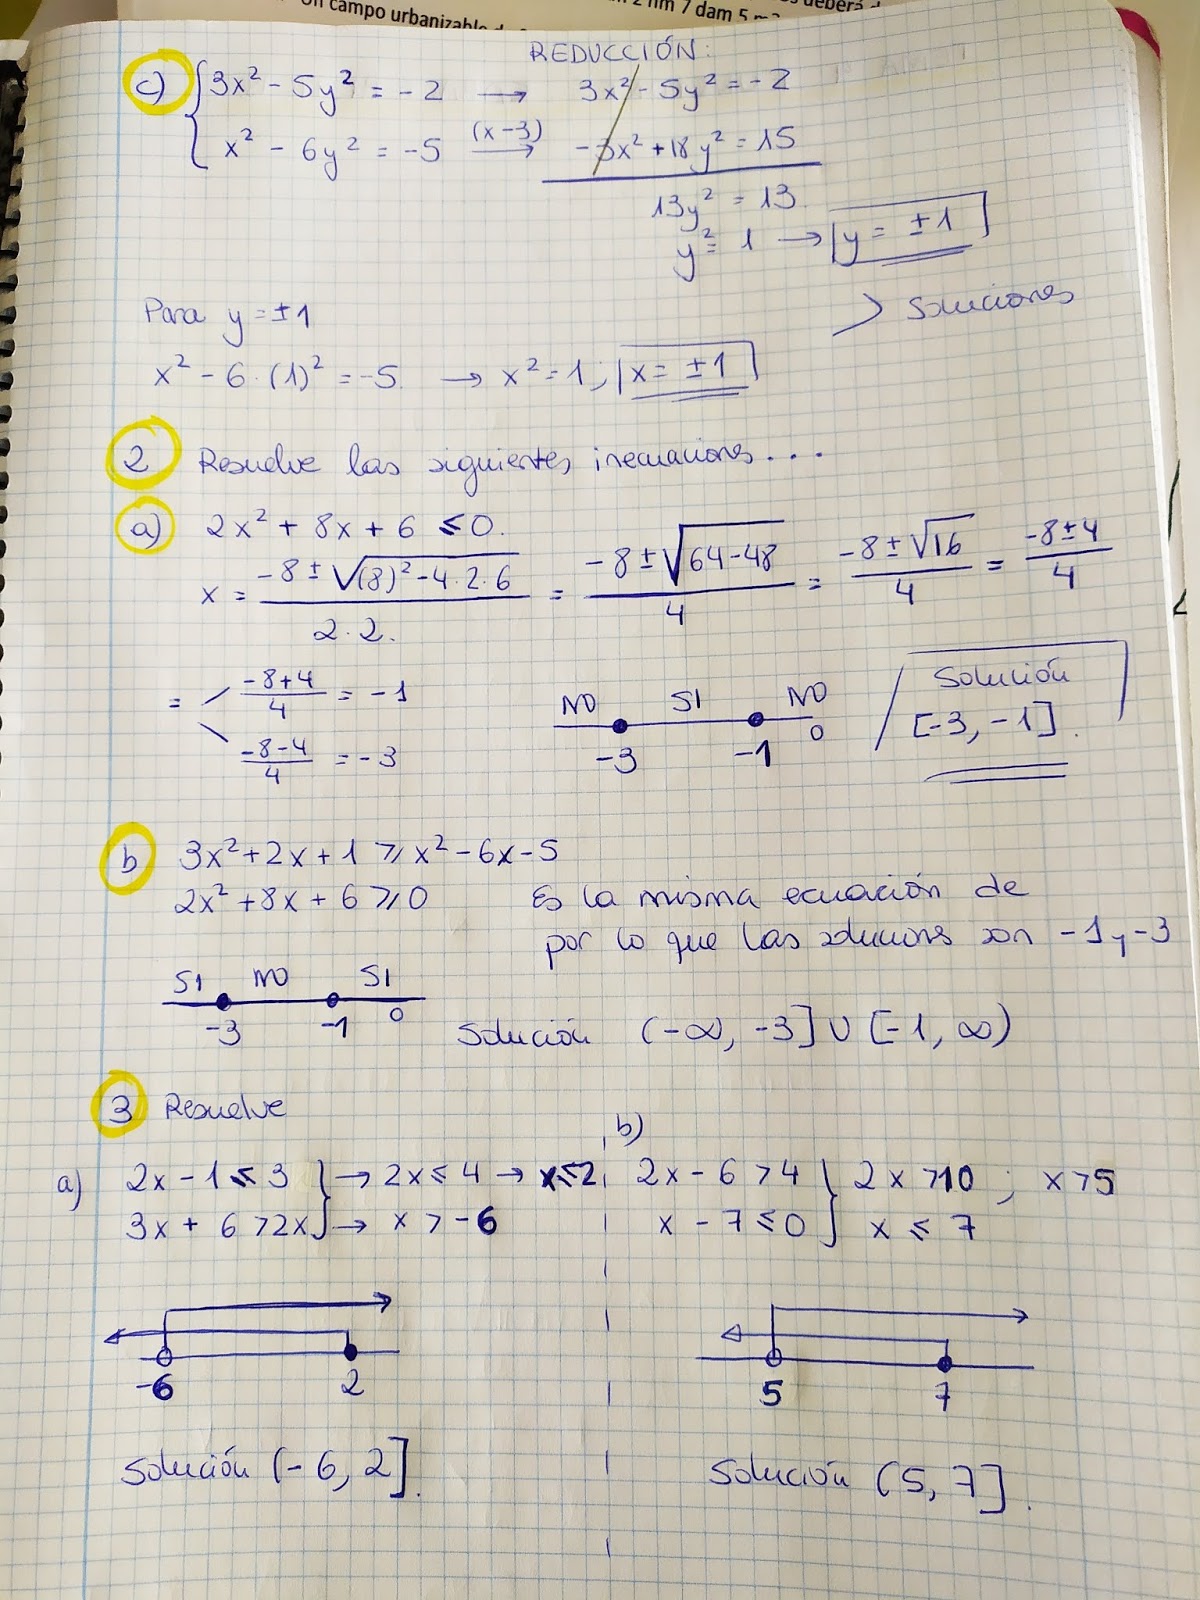 Un campo urbanizable
2 hm 7 dam 5 m²
deberá
REDUCCIÓN:
c) { 3x² - 5y² = -2 → 3x² - 5y² = -2
x² - 6y² = -5 (x-3) → -3x² + 18y² = 15
13y² = 13
y² = 1 → y = ±1
Para y = ±1
> Soluciones
x² - 6·(1)² = -5 → x² = 1; x = ±1
2 Resuelve las siguientes inecuaciones...
a) 2x² + 8x + 6 ≤ 0.
x = (-8 ± √((8)² - 4·2·6))/(2·2.) = (-8 ± √(64-48))/4 = (-8 ± √16)/4 = (-8 ± 4)/4
= (-8+4)/4 = -1
(-8-4)/4 = -3
NO SI NO
-3 -1 0
Solución
[-3, -1].
b 3x² + 2x + 1 ≥ x² - 6x - 5
2x² + 8x + 6 ≥ 0 Es la misma ecuación de
por lo que las soluciones son -1 y -3
SI NO SI
-3 -1 0
Solución (-∞, -3] ∪ [-1, ∞)
3 Resuelve
a) 2x - 1 ≤ 3 } → 2x ≤ 4 → x ≤ 2
3x + 6 > 2x } → x > -6
-6 2
Solución (-6, 2].
b)
2x - 6 > 4 } 2x > 10 ; x > 5
x - 7 ≤ 0 } x ≤ 7
5 7
Solución (5, 7].